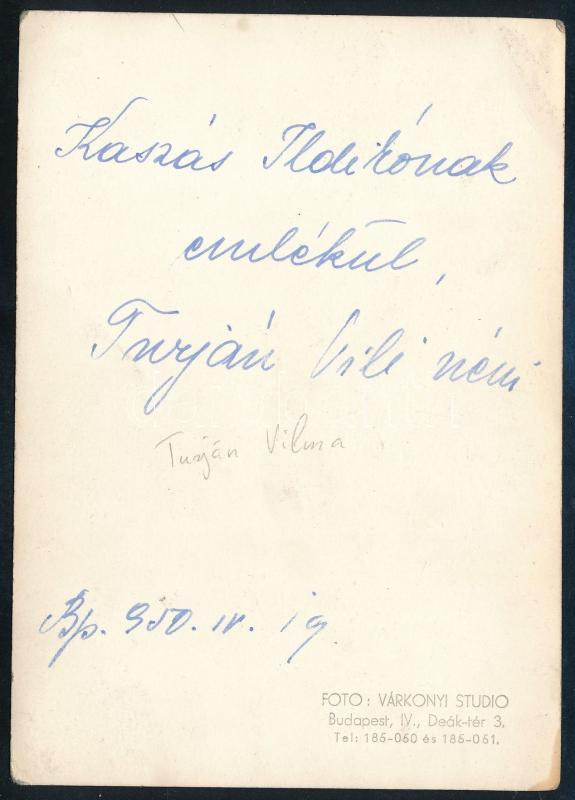 Kaszás Ildikónak
emlékül,
Turján Vili néni
Turján Vilma
Bp. 950. IV. 19.
FOTO: VÁRKONYI STUDIO
Budapest, IV., Deák-tér 3.
Tel: 185-050 és 185-051.